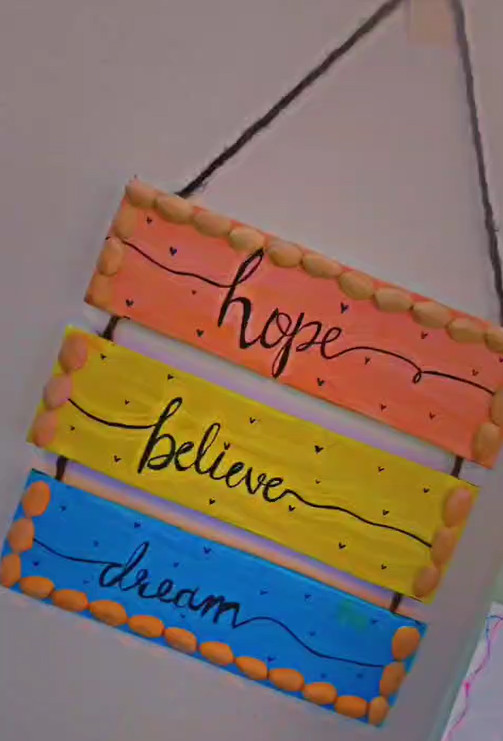 hope
believe
dream